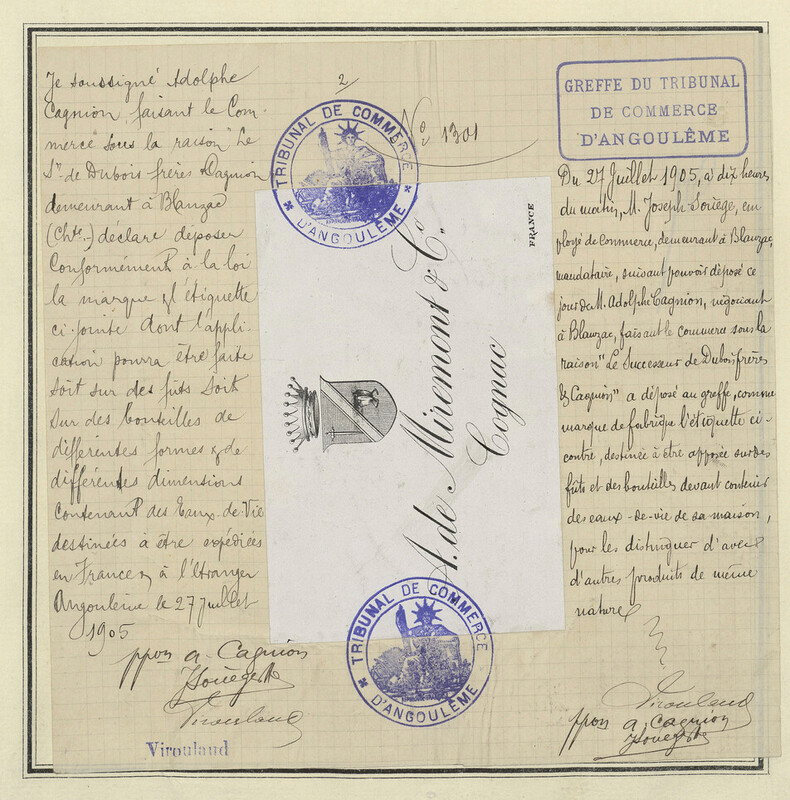 Je soussigné Adolphe
Cagnion, faisant le Com-
merce sous la raison "Le
Sr. de Dubois frères & Cagnion
demeurant à Blanzac
(Chte.) déclare déposer
Conformément à la loi
la marque & l'étiquette
ci-jointe dont l'appli-
cation pourra être faite
soit sur des futs soit
sur des bouteilles de
différentes formes & de
différentes dimensions
contenant des Eaux-de-Vie
destinées à être expédiées
en France & à l'Etranger
Angoulême le 27 Juillet
1905
ppon a. Cagnion
Virouland
Virouland
2
No 1301
TRIBUNAL DE COMMERCE
D'ANGOULÊME
FRANCE
A. de Miremont & Co
Cognac
TRIBUNAL DE COMMERCE
D'ANGOULÊME
GREFFE DU TRIBUNAL
DE COMMERCE
D'ANGOULÊME
Du 27 Juillet 1905, à dix heures
du matin, M. Joseph Soriège, em-
ployé de Commerce, demeurant à Blanzac,
mandataire, suivant pouvoir déposé ce
jour de M. Adolphe Cagnion, négociant
à Blanzac, faisant le commerce sous la
raison "Le Successeur de Dubois frères
& Cagnion" a déposé au greffe, comme
marque de fabrique l'étiquette ci-
contre, destinée à être apposée sur des
fûts et des bouteilles devant contenir
des eaux-de-vie de sa maison,
pour les distinguer d'avec
d'autres produits de même
nature
Virouland
ppon a. Cagnion